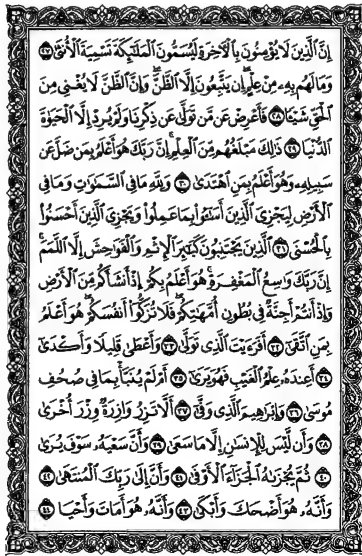 إِنَّ ٱلَّذِينَ لَا يُؤْمِنُونَ بِٱلْآخِرَةِ لَيُسَمُّونَ ٱلْمَلَٰٓئِكَةَ تَسْمِيَةَ ٱلْأُنثَىٰ ٢٧
وَمَا لَهُم بِهِۦ مِنْ عِلْمٍ إِن يَتَّبِعُونَ إِلَّا ٱلظَّنَّ وَإِنَّ ٱلظَّنَّ لَا يُغْنِى مِنَ
ٱلْحَقِّ شَيْـًٔا ٢٨ فَأَعْرِضْ عَن مَّن تَوَلَّىٰ عَن ذِكْرِنَا وَلَمْ يُرِدْ إِلَّا ٱلْحَيَوٰةَ
ٱلدُّنْيَا ٢٩ ذَٰلِكَ مَبْلَغُهُم مِّنَ ٱلْعِلْمِ إِنَّ رَبَّكَ هُوَ أَعْلَمُ بِمَن ضَلَّ عَن
سَبِيلِهِۦ وَهُوَ أَعْلَمُ بِمَنِ ٱهْتَدَىٰ ٣٠ وَلِلَّهِ مَا فِى ٱلسَّمَٰوَٰتِ وَمَا فِى
ٱلْأَرْضِ لِيَجْزِىَ ٱلَّذِينَ أَسَٰٓـُٔوا۟ بِمَا عَمِلُوا۟ وَيَجْزِىَ ٱلَّذِينَ أَحْسَنُوا۟
بِٱلْحُسْنَى ٣١ ٱلَّذِينَ يَجْتَنِبُونَ كَبَٰٓئِرَ ٱلْإِثْمِ وَٱلْفَوَٰحِشَ إِلَّا ٱللَّمَمَ
إِنَّ رَبَّكَ وَٰسِعُ ٱلْمَغْفِرَةِ هُوَ أَعْلَمُ بِكُمْ إِذْ أَنشَأَكُم مِّنَ ٱلْأَرْضِ
وَإِذْ أَنتُمْ أَجِنَّةٌ فِى بُطُونِ أُمَّهَٰتِكُمْ فَلَا تُزَكُّوٓا۟ أَنفُسَكُمْ هُوَ أَعْلَمُ
بِمَنِ ٱتَّقَىٰٓ ٣٢ أَفَرَءَيْتَ ٱلَّذِى تَوَلَّىٰ ٣٣ وَأَعْطَىٰ قَلِيلًا وَأَكْدَىٰٓ
٣٤ أَعِندَهُۥ عِلْمُ ٱلْغَيْبِ فَهُوَ يَرَىٰٓ ٣٥ أَمْ لَمْ يُنَبَّأْ بِمَا فِى صُحُفِ
مُوسَىٰ ٣٦ وَإِبْرَٰهِيمَ ٱلَّذِى وَفَّىٰٓ ٣٧ أَلَّا تَزِرُ وَازِرَةٌ وِزْرَ أُخْرَىٰ
٣٨ وَأَن لَّيْسَ لِلْإِنسَٰنِ إِلَّا مَا سَعَىٰ ٣٩ وَأَنَّ سَعْيَهُۥ سَوْفَ يُرَىٰ
٤٠ ثُمَّ يُجْزَىٰهُ ٱلْجَزَآءَ ٱلْأَوْفَىٰ ٤١ وَأَنَّ إِلَىٰ رَبِّكَ ٱلْمُنتَهَىٰ ٤٢
وَأَنَّهُۥ هُوَ أَضْحَكَ وَأَبْكَىٰ ٤٣ وَأَنَّهُۥ هُوَ أَمَاتَ وَأَحْيَا ٤٤